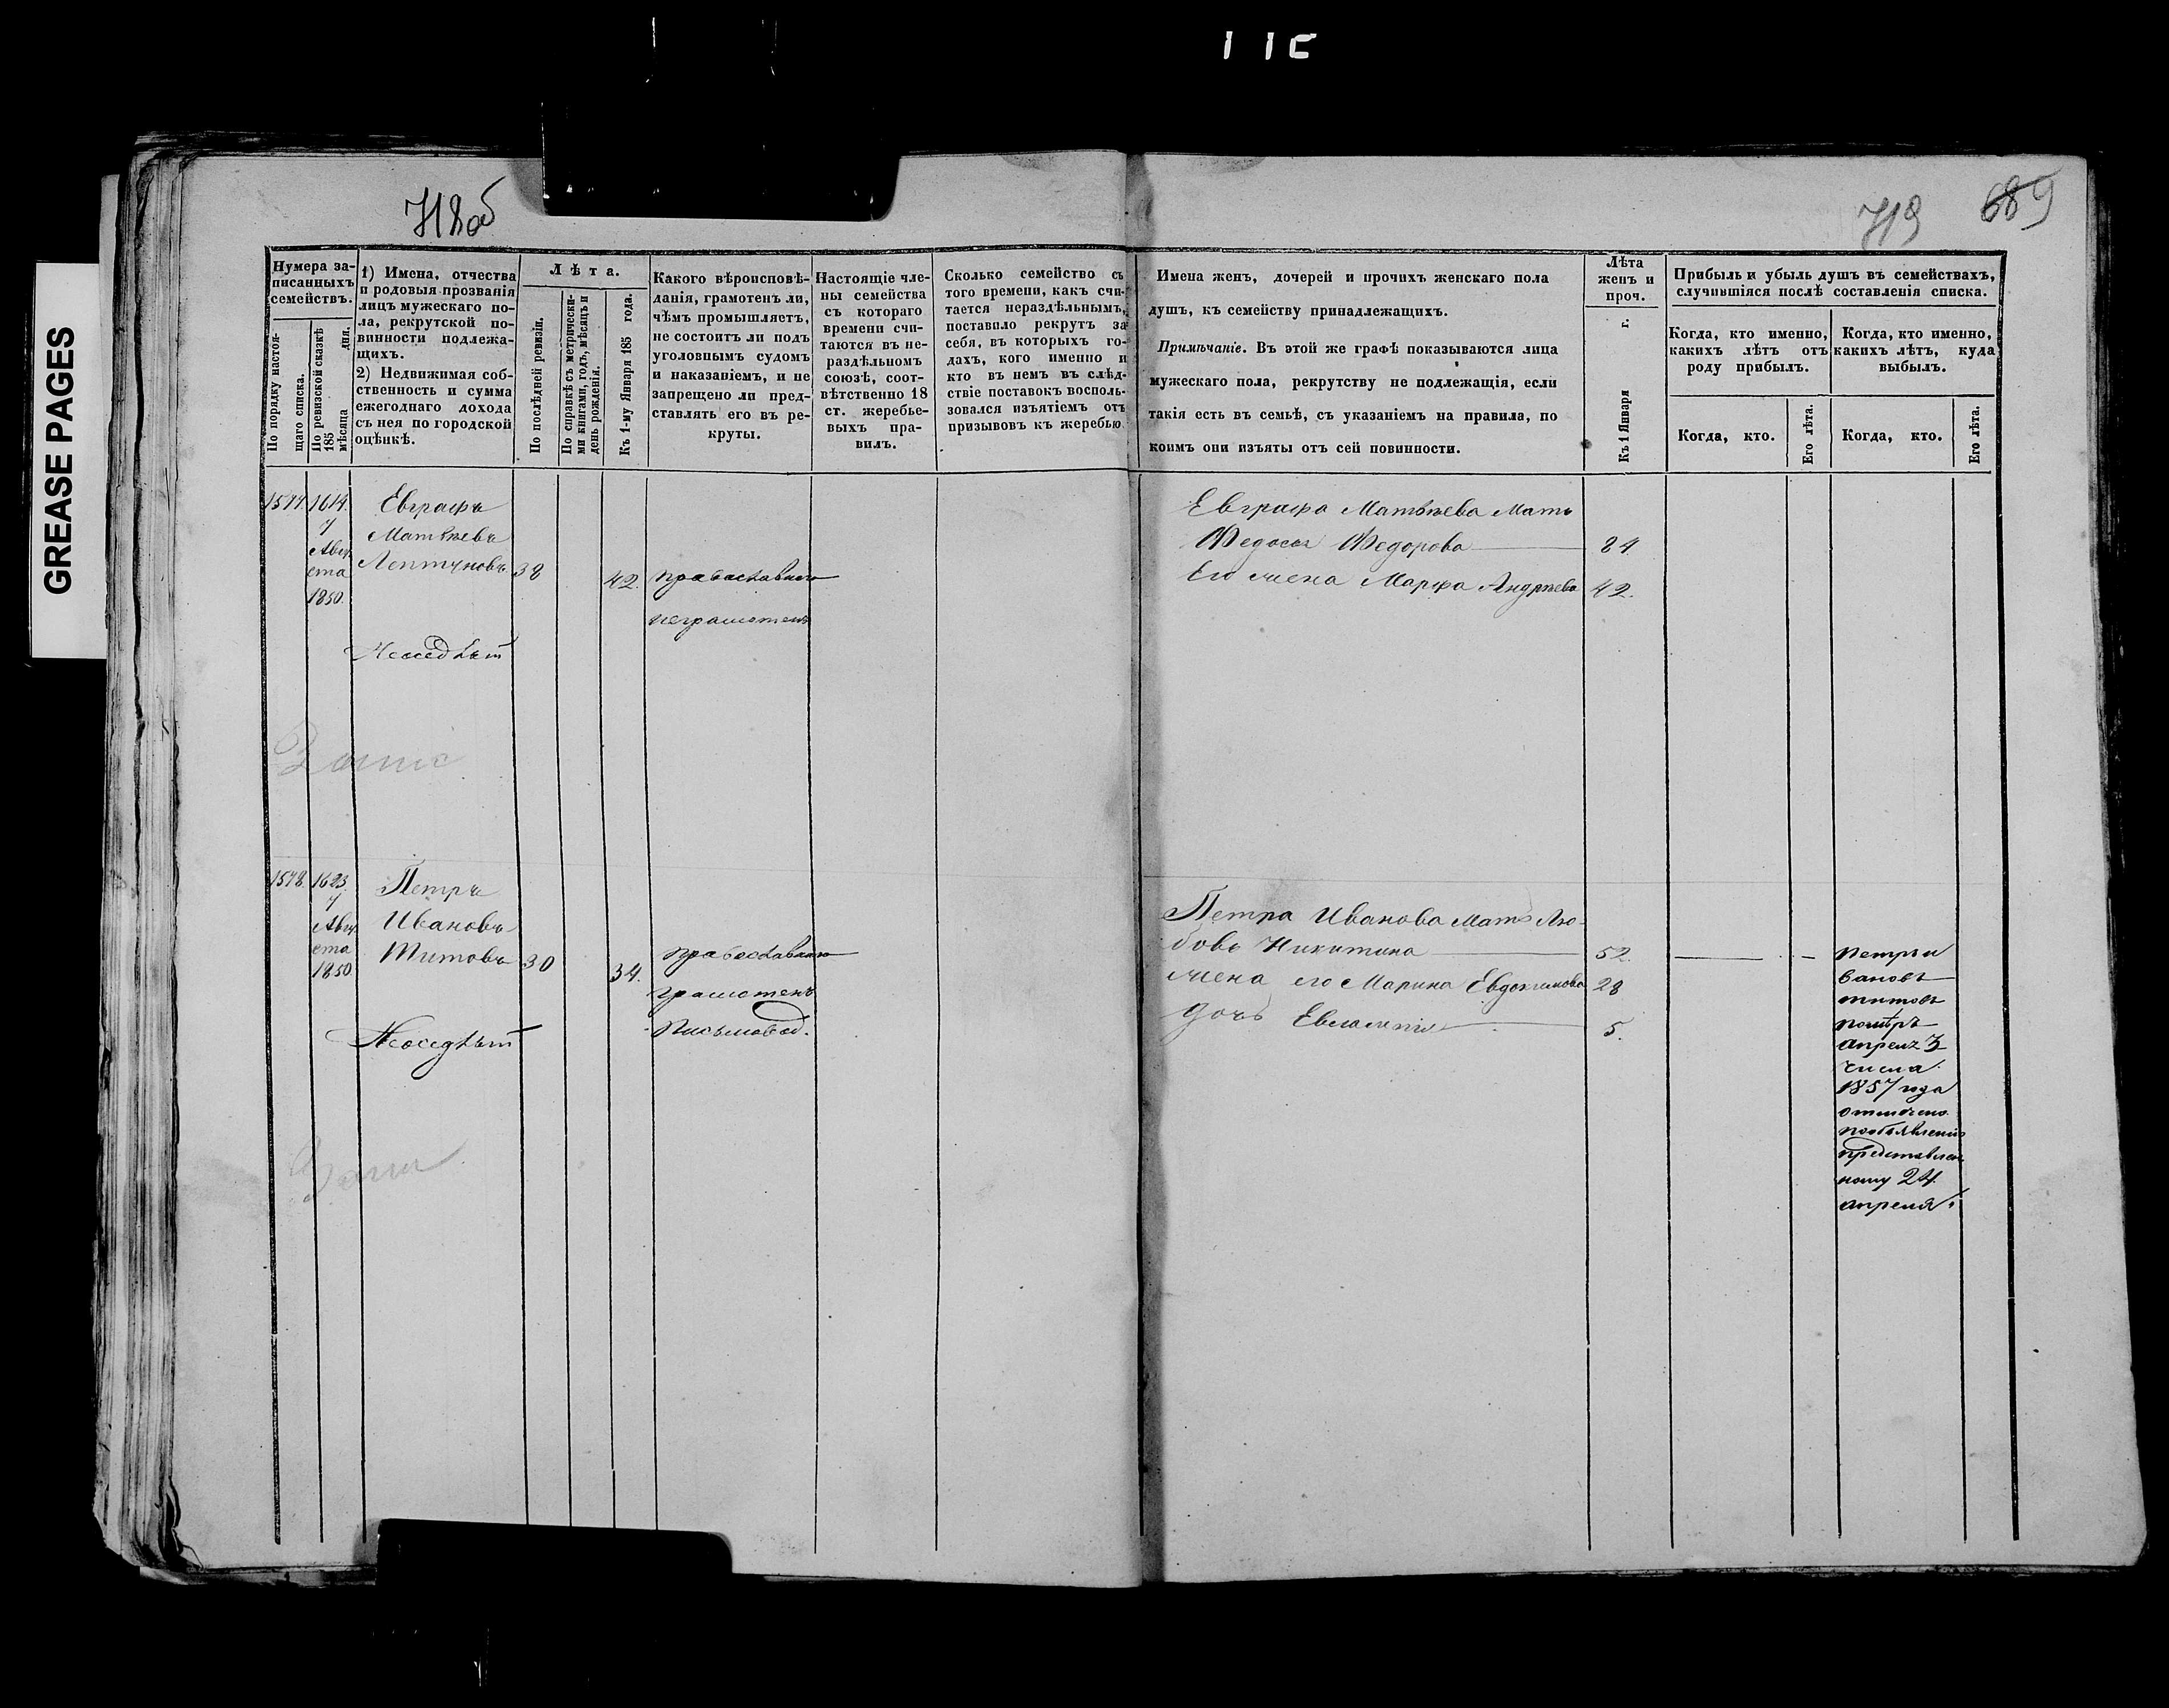 GREASE PAGES
718об
719
689
Нумера записанныхъ семействъ.
По порядку настоящаго списка.
По ревизской сказкѣ 185 мѣсяца дня.
1) Имена, отчества и родовыя прозванія лицъ мужескаго пола, рекрутской повинности подлежащихъ.
2) Недвижимая собственность и сумма ежегоднаго дохода съ нея по городской оцѣнкѣ.
Лѣта.
По послѣдней ревизіи.
По справкѣ съ метрическими книгами, годъ, мѣсяцъ и день рожденія.
Къ 1-му Января 185 года.
Какого вѣроисповѣданія, грамотенъ ли, чѣмъ промышляетъ, не состоитъ ли подъ уголовнымъ судомъ и наказаніемъ, и не запрещено ли представлять его въ рекруты.
Настоящіе члены семейства съ котораго времени считаются въ нераздѣльномъ союзѣ, соотвѣтственно 18 ст. жеребьевыхъ правилъ.
Сколько семейство съ того времени, какъ считается нераздѣльнымъ, поставило рекрутъ за себя, въ которыхъ годахъ, кого именно и кто въ немъ въ слѣдствіе поставокъ воспользовался изъятіемъ отъ призывовъ къ жеребью
Имена женъ, дочерей и прочихъ женскаго пола
душъ, къ семейству принадлежащихъ.
Примѣчаніе. Въ этой же графѣ показываются лица
мужескаго пола, рекрутству не подлежащія, если
такія есть въ семьѣ, съ указаніемъ на правила, по
коимъ они изъяты отъ сей повинности.
Лѣта женъ и проч.
Къ 1 Января г.
Прибыль и убыль душъ въ семействахъ,
случившіяся послѣ составленія списка.
Когда, кто именно, какихъ лѣтъ отъ роду прибылъ.
Когда, кто именно, какихъ лѣтъ, куда выбылъ.
Когда, кто.
Его лѣта.
Когда, кто.
Его лѣта.
1577 1614
Евграфъ
Матвѣевъ
Авгу
ста
1850.
38
42.
православнаго
неграмотенъ
Евграфа Матвѣева Мать
Федосья Федорова 84
Его жена Марфа Андрѣева 42.
1578. 1623.
Петръ
Авгу
Ивановъ
ста
Титовъ 30
1850
34.
православнаго
грамотенъ
Петра Иванова Мать Лю-
бовь Никитина 52.
Жена его Марина Евдокимова 28
дочь 5.
Петръ И
вановъ
титовъ
апреля 3
числа
1857 года
отмечено
по объявленію
представлен
ному 24
апреля.